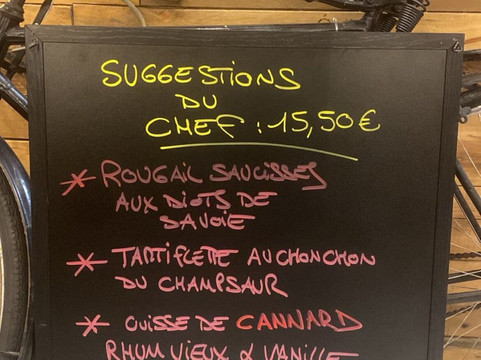 SUGGESTIONS
DU
CHEF : 15,50€
* ROUGAIL SAUCISSES
AUX DIOTS DE
SAVOIE
* TARTIFLETTE AU CHONCHON
DU CHAMPSAUR
* CUISSE DE CANNARD
RHUM VIEUX & VANILLE